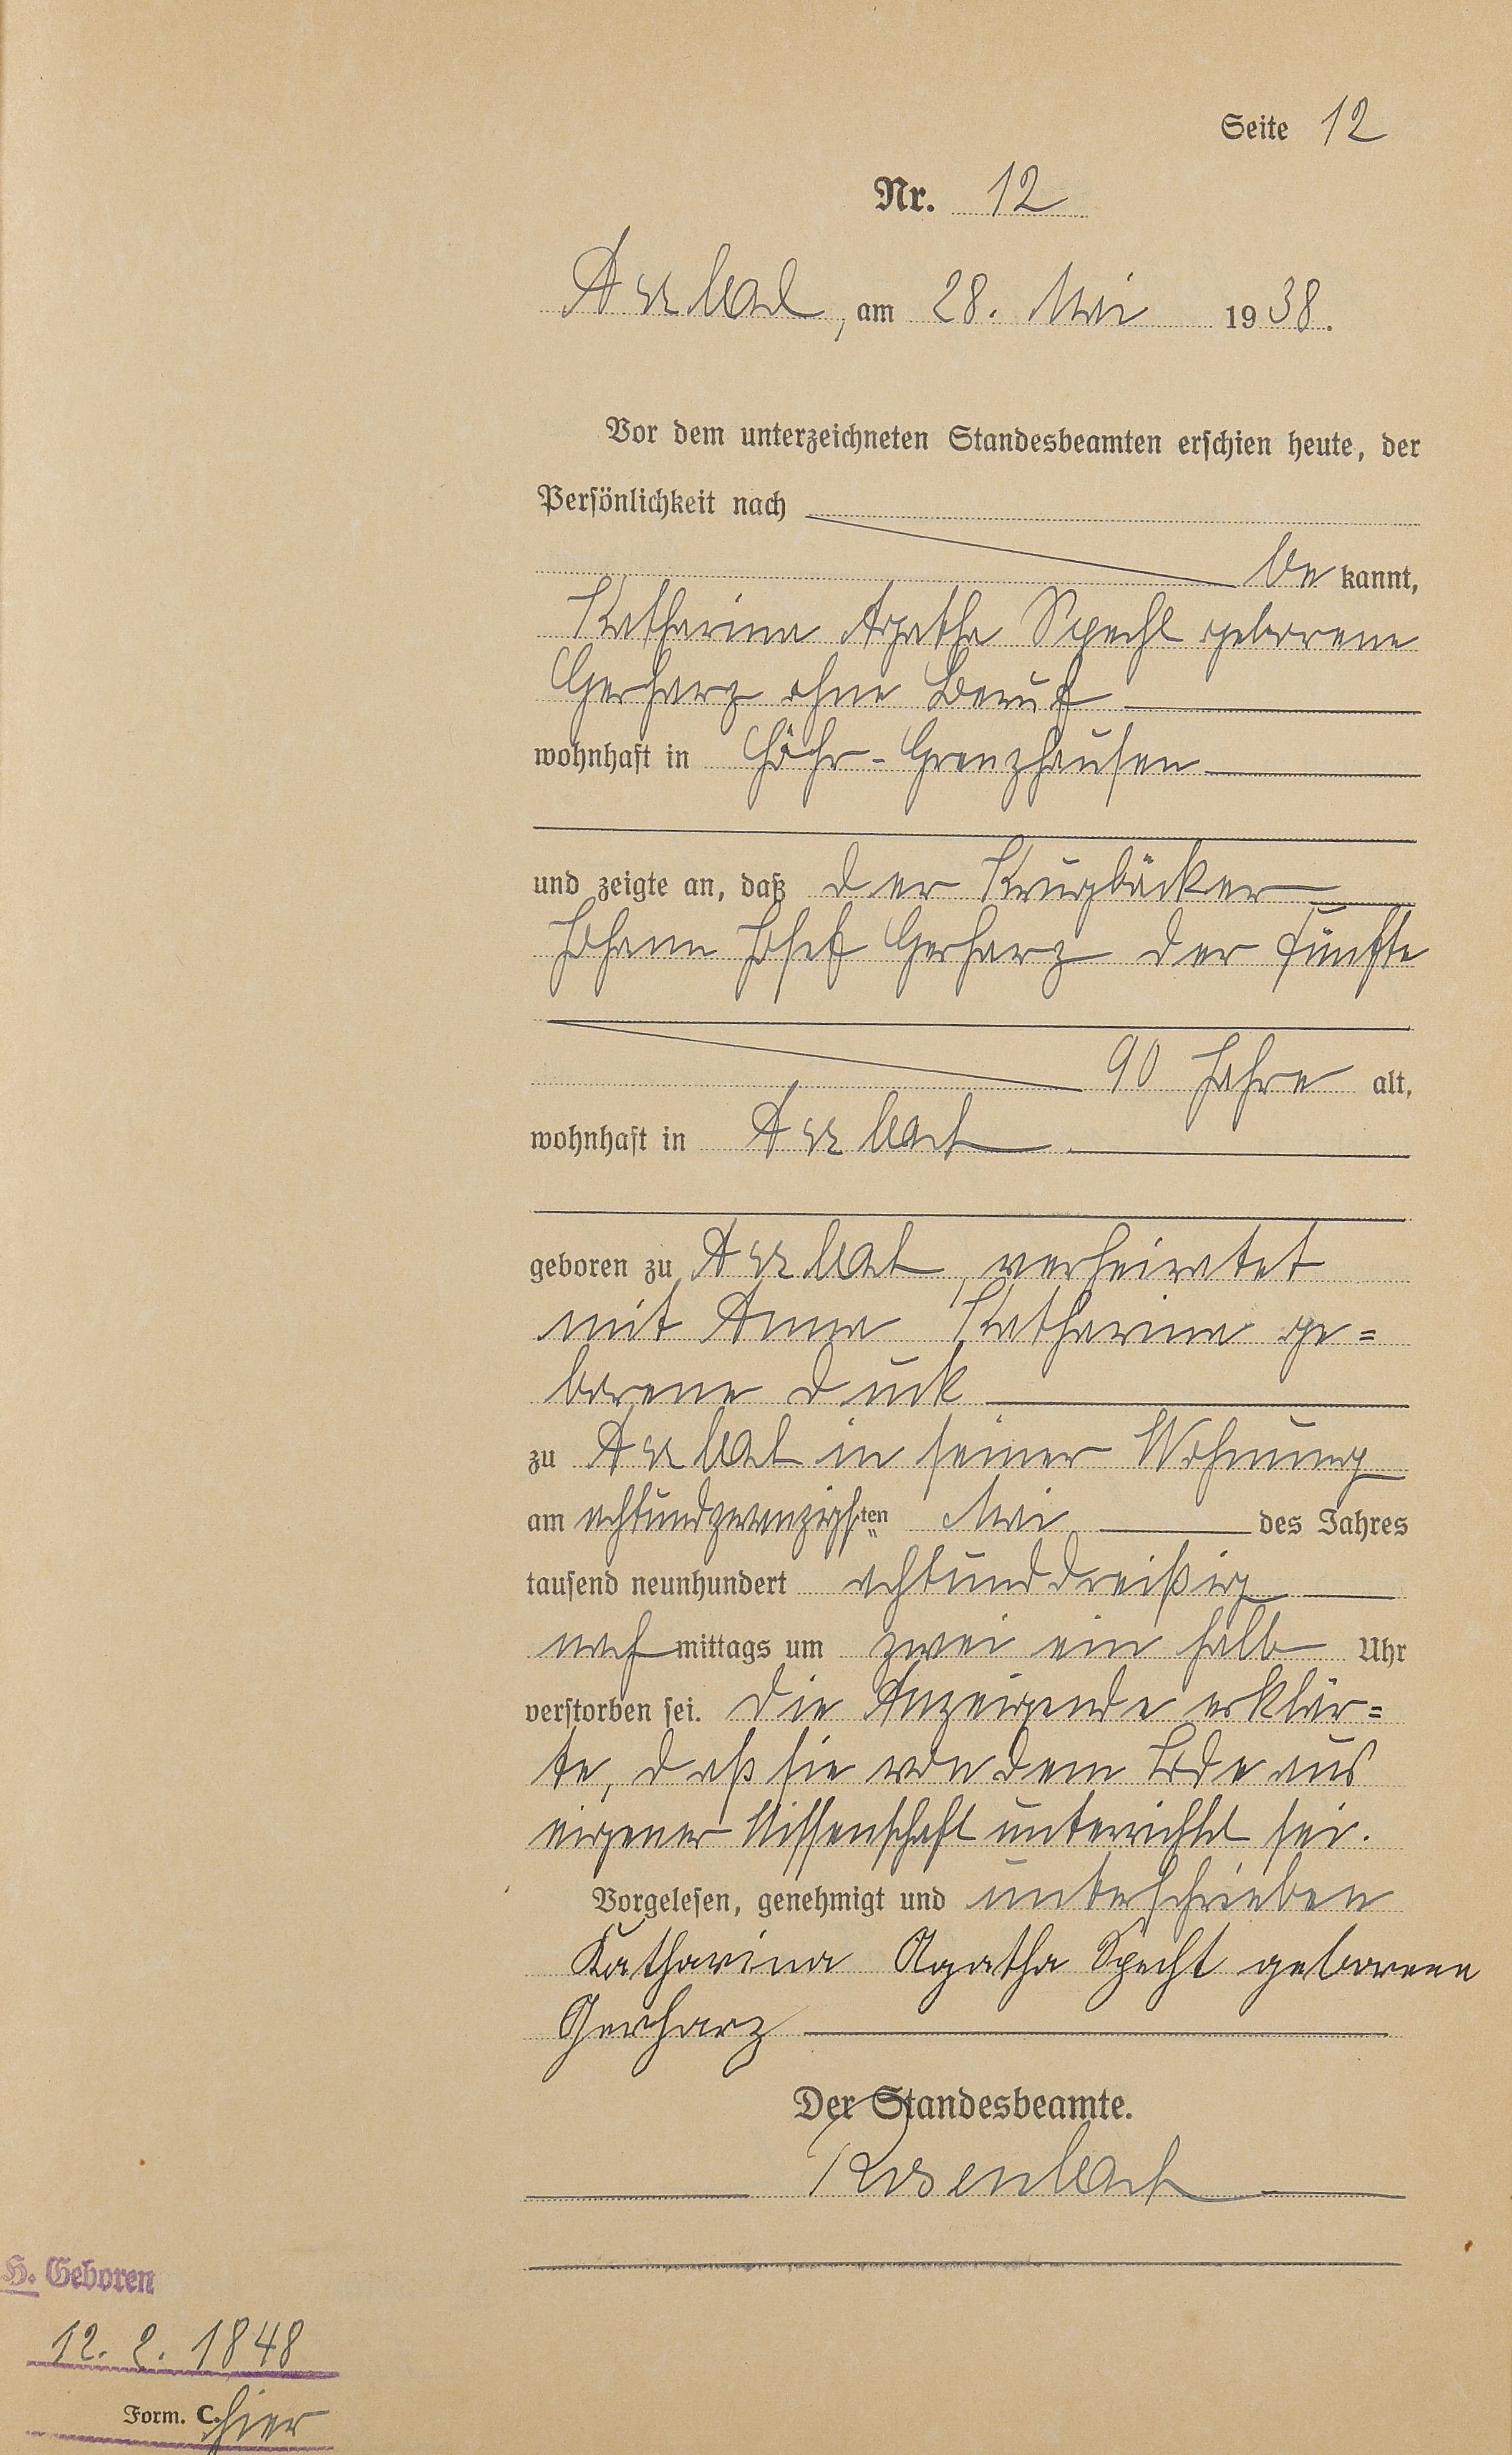 Seite 12
Nr. 12
Arzbach, am 28. Mai 1938.
Vor dem unterzeichneten Standesbeamten erschien heute, der
Persönlichkeit nach
be kannt,
Katharina Agatha Specht geborene
Gerharz ohne Beruf
wohnhaft in Höhr-Grenzhausen
und zeigte an, daß der Krugbäcker
Johann Josef Gerharz der fünfte
90 Jahre alt,
wohnhaft in Arzbach
geboren zu Arzbach, verheiratet
mit Anna Katharina ge=
borene Duck
zu Arzbach in seiner Wohnung
am achtundzwanzigsten Mai des Jahres
tausend neunhundert achtunddreißig
nach mittags um zwei ein halb Uhr
verstorben sei. Die Anzeigende erklär=
te, daß sie von dem Tode aus
eigener Wissenschaft unterrichtet sei.
Vorgelesen, genehmigt und unterschrieben
Katharina Agatha Specht geborene
Gerharz
Der Standesbeamte.
Rosenbach
H. Geboren
12. 2. 1848
Form. C. hier